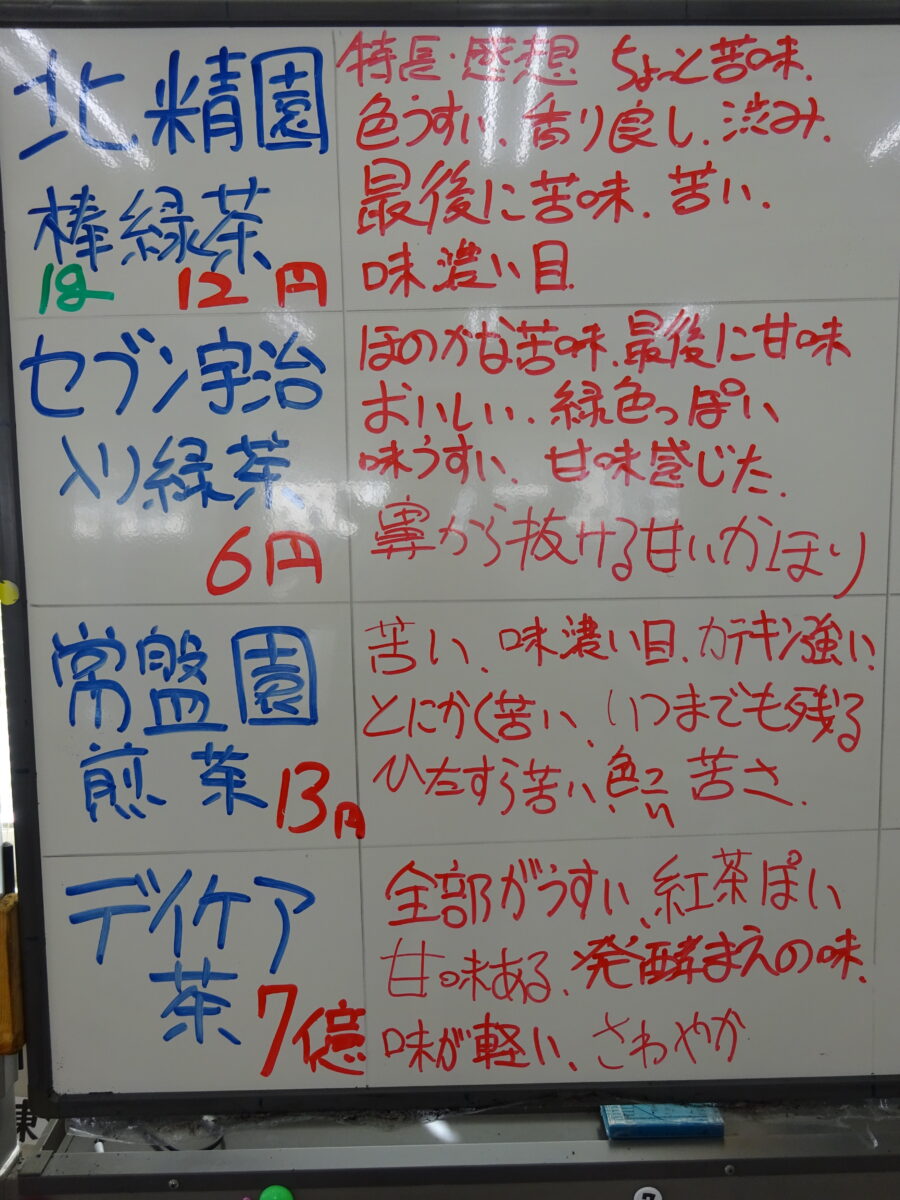 北精園
棒緑茶
1g 12円
特長・感想 ちょっと苦味、
色うすい、香り良し、渋み、
最後に苦味、苦い、
味濃い目
セブン宇治
入り緑茶
6円
ほのかな苦味、最後に甘味
おいしい、緑色っぽい
味うすい、甘味感じた、
鼻から抜ける甘いかほり
常盤園
煎茶 13円
苦い、味濃い目、カテキン強い、
とにかく苦い、いつまでも残る
ひたすら苦い、色こい 苦さ、
デイケア
茶 7億
全部がうすい、紅茶ぽい
甘味ある、発酵まえの味、
味が軽い、さわやか